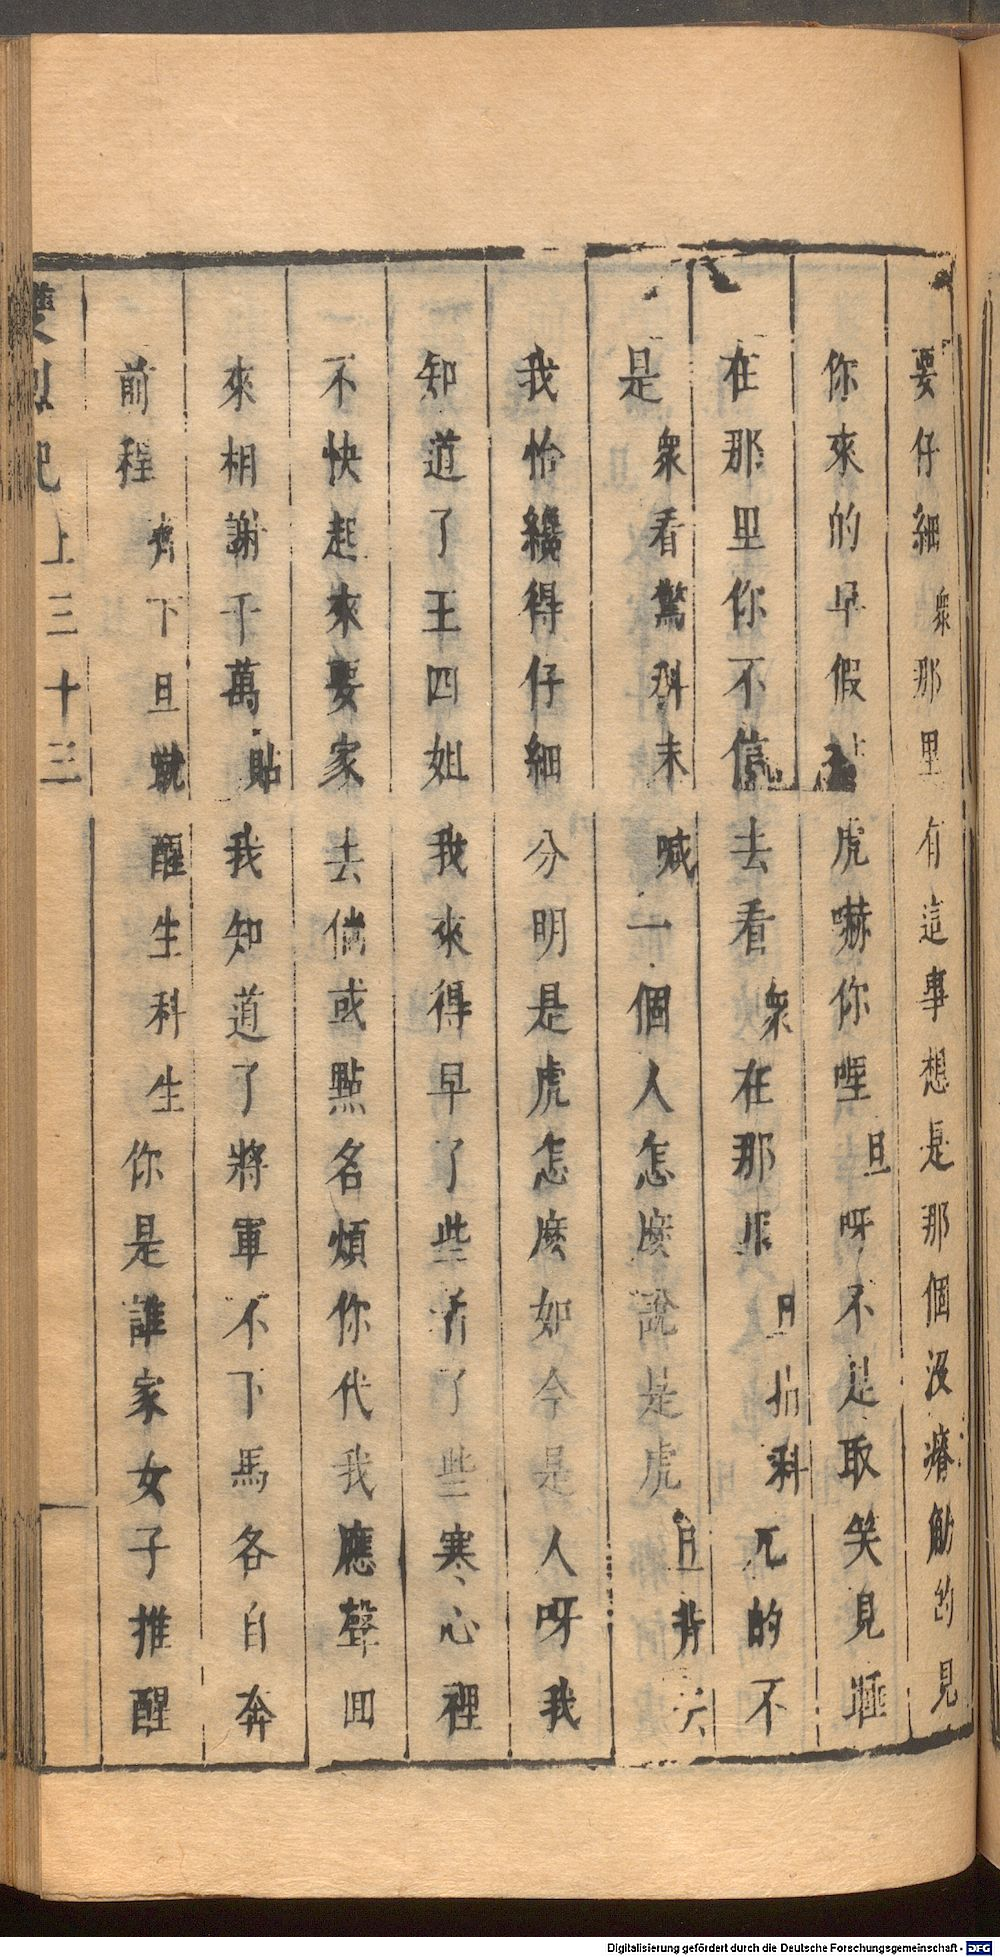 要仔細衆那里有這事想是那個没瘠的見
你來的早假虎嚇你哩旦呀不是取笑見
在那里你不信去看衆在那里旦指科兀的不
是衆看驚科末喊一個人怎麼説是虎旦背
我恰纔得仔細分明是虎怎麼如今是人呀我
知道了王四姐我來得早了些着了些寒心裡
不快起來要家去倘或點名煩你代我應聲回
來相謝千萬貼我知道了將軍不下馬各自奔
前程齊下旦蹴醒生科生你是誰家女子推醒
雙烈記上三十三
Digitalisierung gefördert durch die Deutsche Forschungsgemeinschaft - DFG